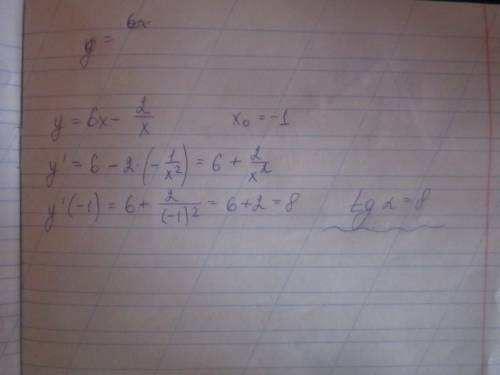 y =
y = 6x - 2/x x₀ = -1
y' = 6 - 2·(-1/x²) = 6 + 2/x²
y'(-1) = 6 + 2/(-1)² = 6+2 = 8 tg α = 8